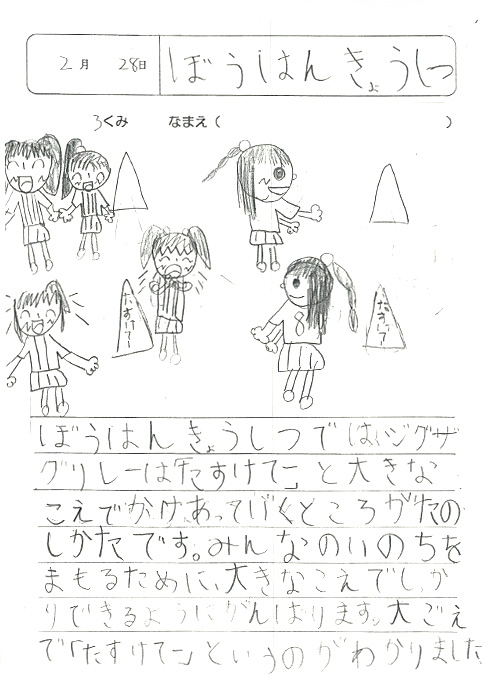 2月 28日 ぼうはんきょうしつ
3くみ なまえ( )
たすけて
たすけて
8
ぼうはんきょうしつではジグザ
グリレーは「たすけてー」と大きな
こえでかけあってい くところがたの
しかたです。みんなのいのちを
まもるために、大きなこえでしっか
りできるようにがんばります。大ごえ
で「たすけてー」というのがわかりました